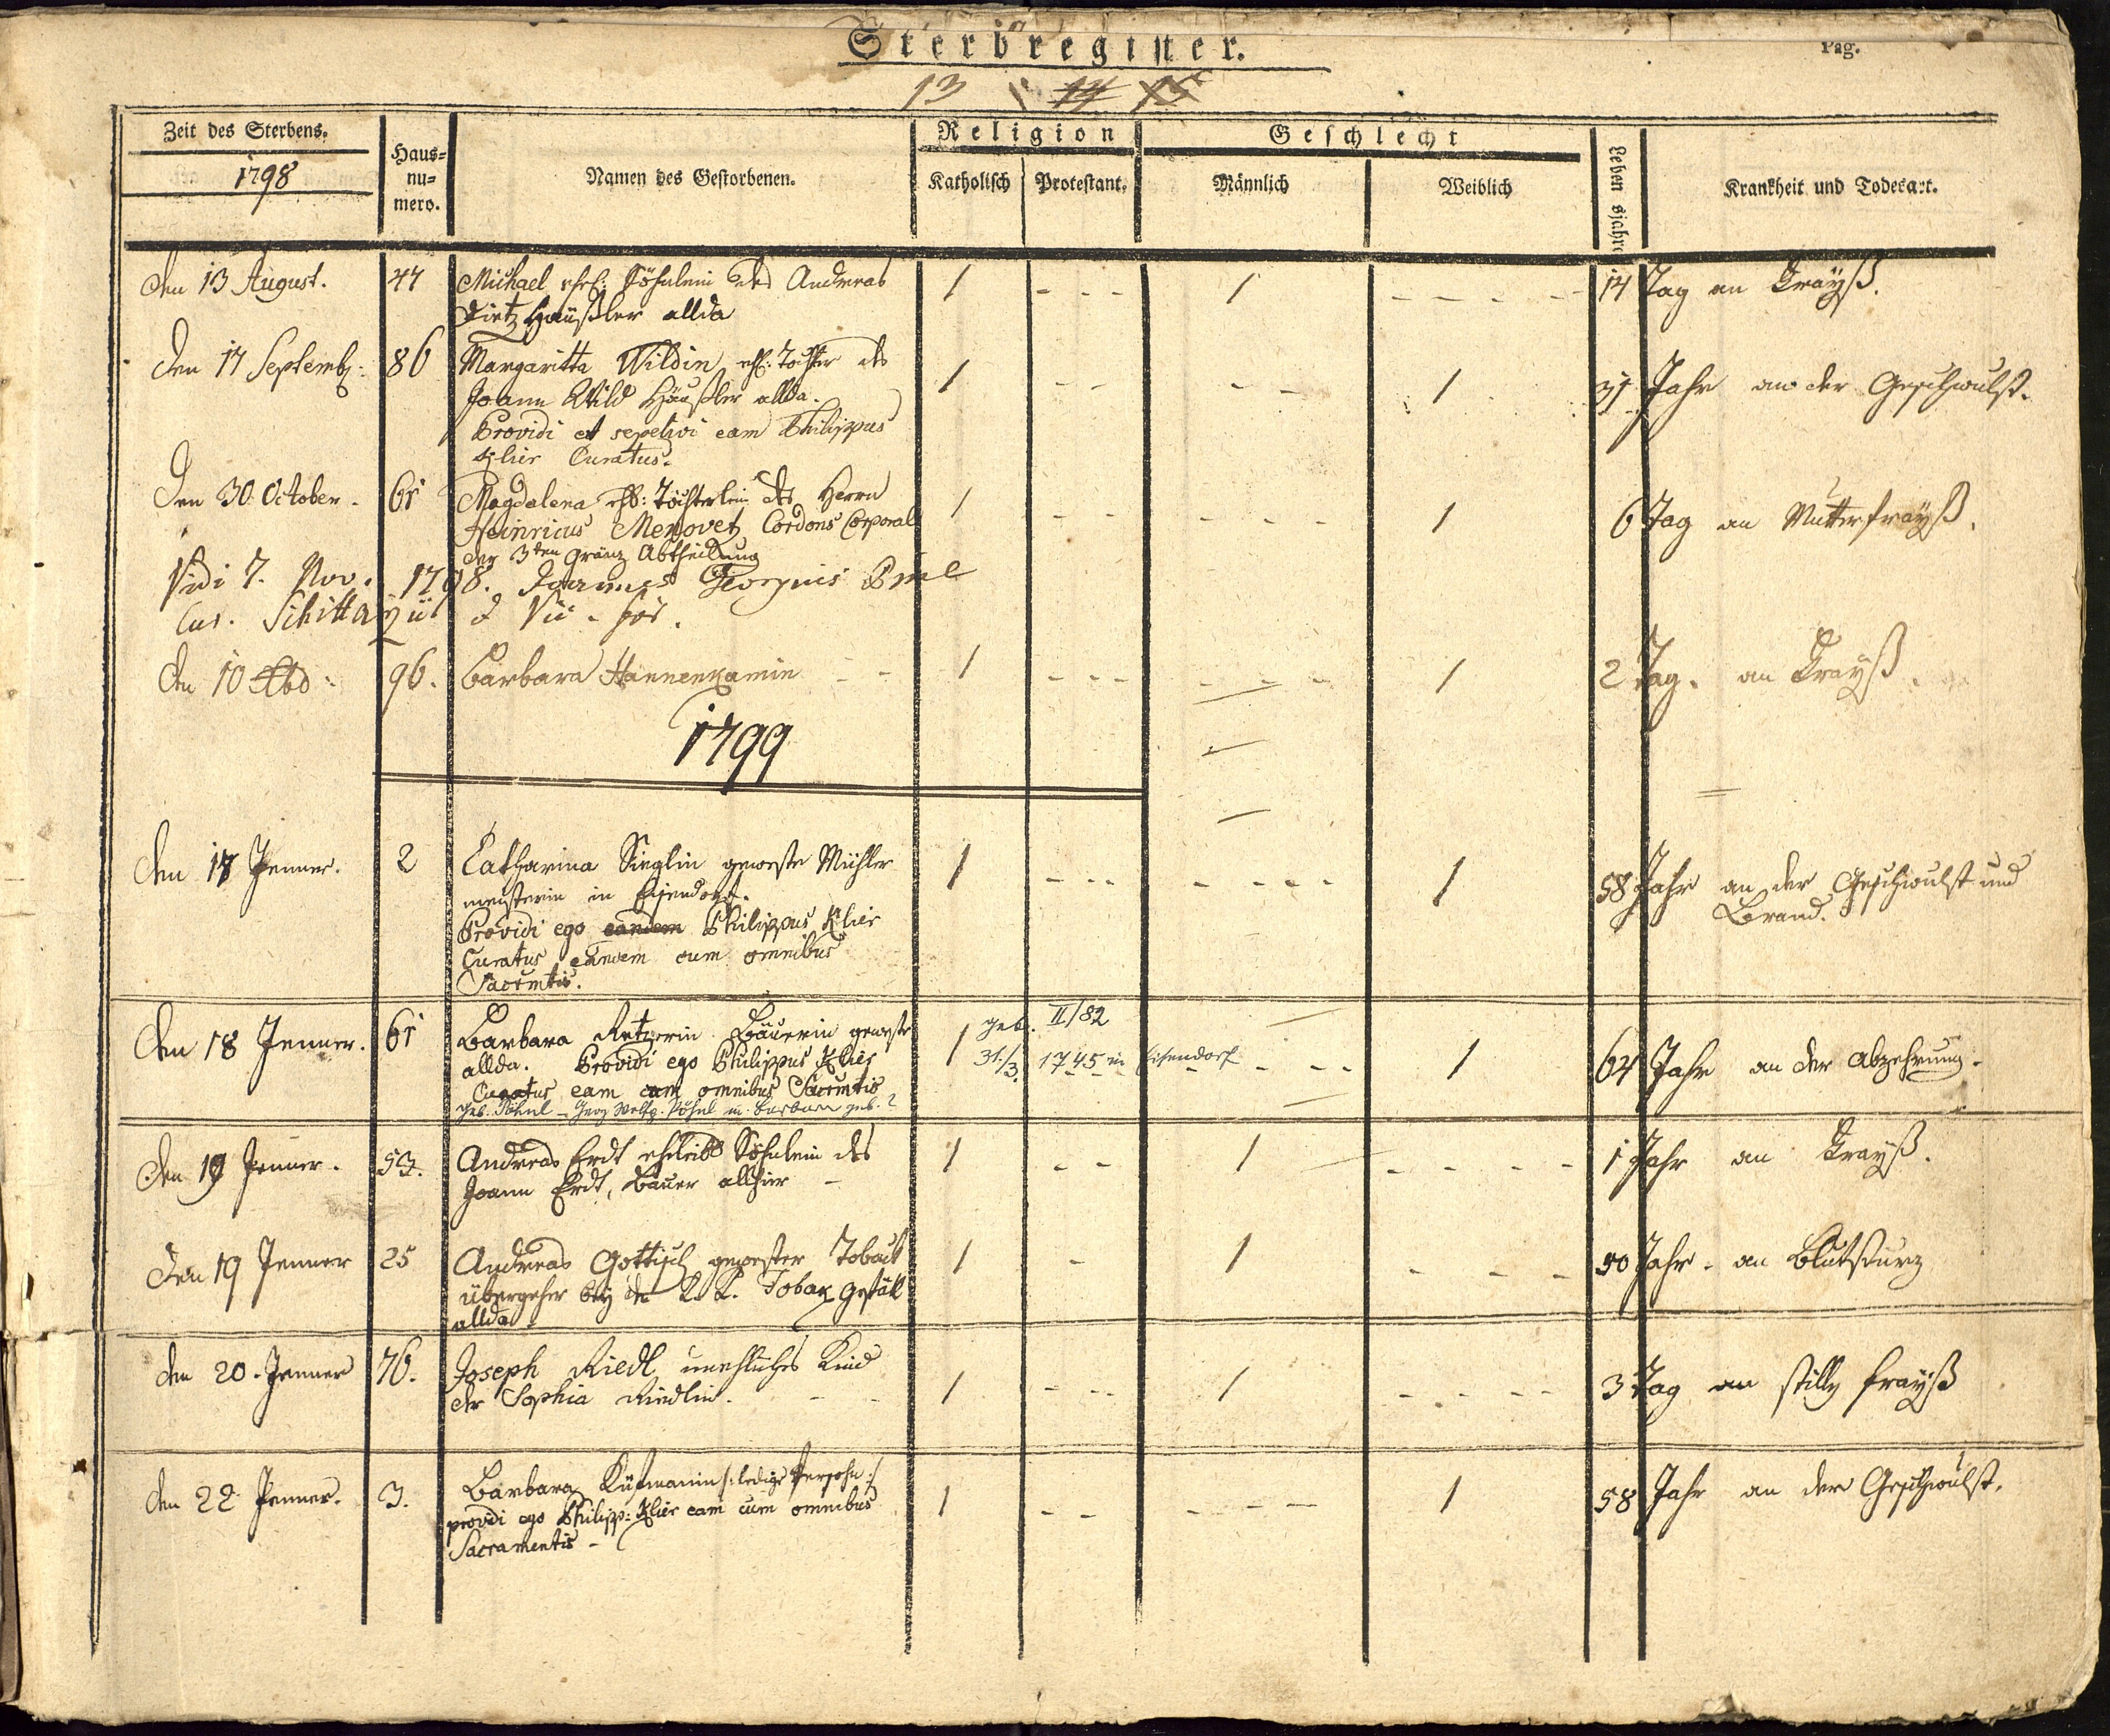 Sterbregister.
Pag.
13 14 15
Zeit des Sterbens.
1798
Haus=
nu=
mero.
Namen des Gestorbenen.
Religion
Katholisch
Protestant.
Geschlecht
Männlich
Weiblich
Lebensjahre
Krankheit und Todesart.
den 13 August. 44 Michael ehel: Söhnlein des Andreas 1 - - - 1 - - - - - 14 Tag an Frayß.
Dietz Häußler allda
den 17 Septemb: 86 Margaritta Wildin ehl: Tochter des 1 - - - - 1 31 Jahr an der Geschwulst.
Joann Wild Häußler allda.
Providi et sepelivi eam Philippus
Klier Curatus.
Den 30 October. 61 Magdalena ehl: Töchterlein des Herrn 1 - - - - - - 1 6 Tag an Mutterfrayß.
Heinricus Cordons Corporal
der 3ten Gränz Abtheilung
Vidi 7. Nov. 1798. Joannes Georgius
Cur.
den 10 96. Barbara - - 1 - - - - - - - 1 2 Tag. an Frayß.
1799
den 17 Jenner. 2 Catharina Sieglin geweste Mühler 1 - - - - - - - 1 58 Jahr an der Geschwulst und
meisterin in Eisendorf. Brand.
Providi ego eandem Philippus Klier
Curatus eandem cum omnibus
Sacrmtis.
geb. II/82
Den 18 Jenner. 61 Barbara Retzerin Bäuerin geweste 1 31./3. 1745 in Eisendorf - - - 1 64 Jahr an der Abzehrung.
allda. Providi ego Philippus Klier
Curatus eam cum omnibus Sacrmtis
geb. Pöhnl - Georg Wolfg. Pöhnl u. Barbara geb. ?
Den 19 Jenner. 53. Andreas Erdt ehleibl Söhnlein des 1 - - 1 - - - - - 1 Jahr an Frayß.
Joann Erdt, Bauer allhier -
Den 19 Jenner 25 Andreas Gottisch gewester Toback 1 - 1 - - - 50 Jahr. an Blutsturz
übergeher bey der K. K. Tobak Gefäll
allda.
den 20. Jenner 76. Joseph Riedl unehliches Kind
der Sophia Riedlin. - - 1 - - - 1 - - - - 3 Tag an stille frayß
den 22 Jenner. 3. Barbara /:ledige Persohn:/ 1 - - - - - - 1 58 Jahr an der Geschwulst.
providi ego Philipp: Klier eam cum omnibus
Sacramentis -